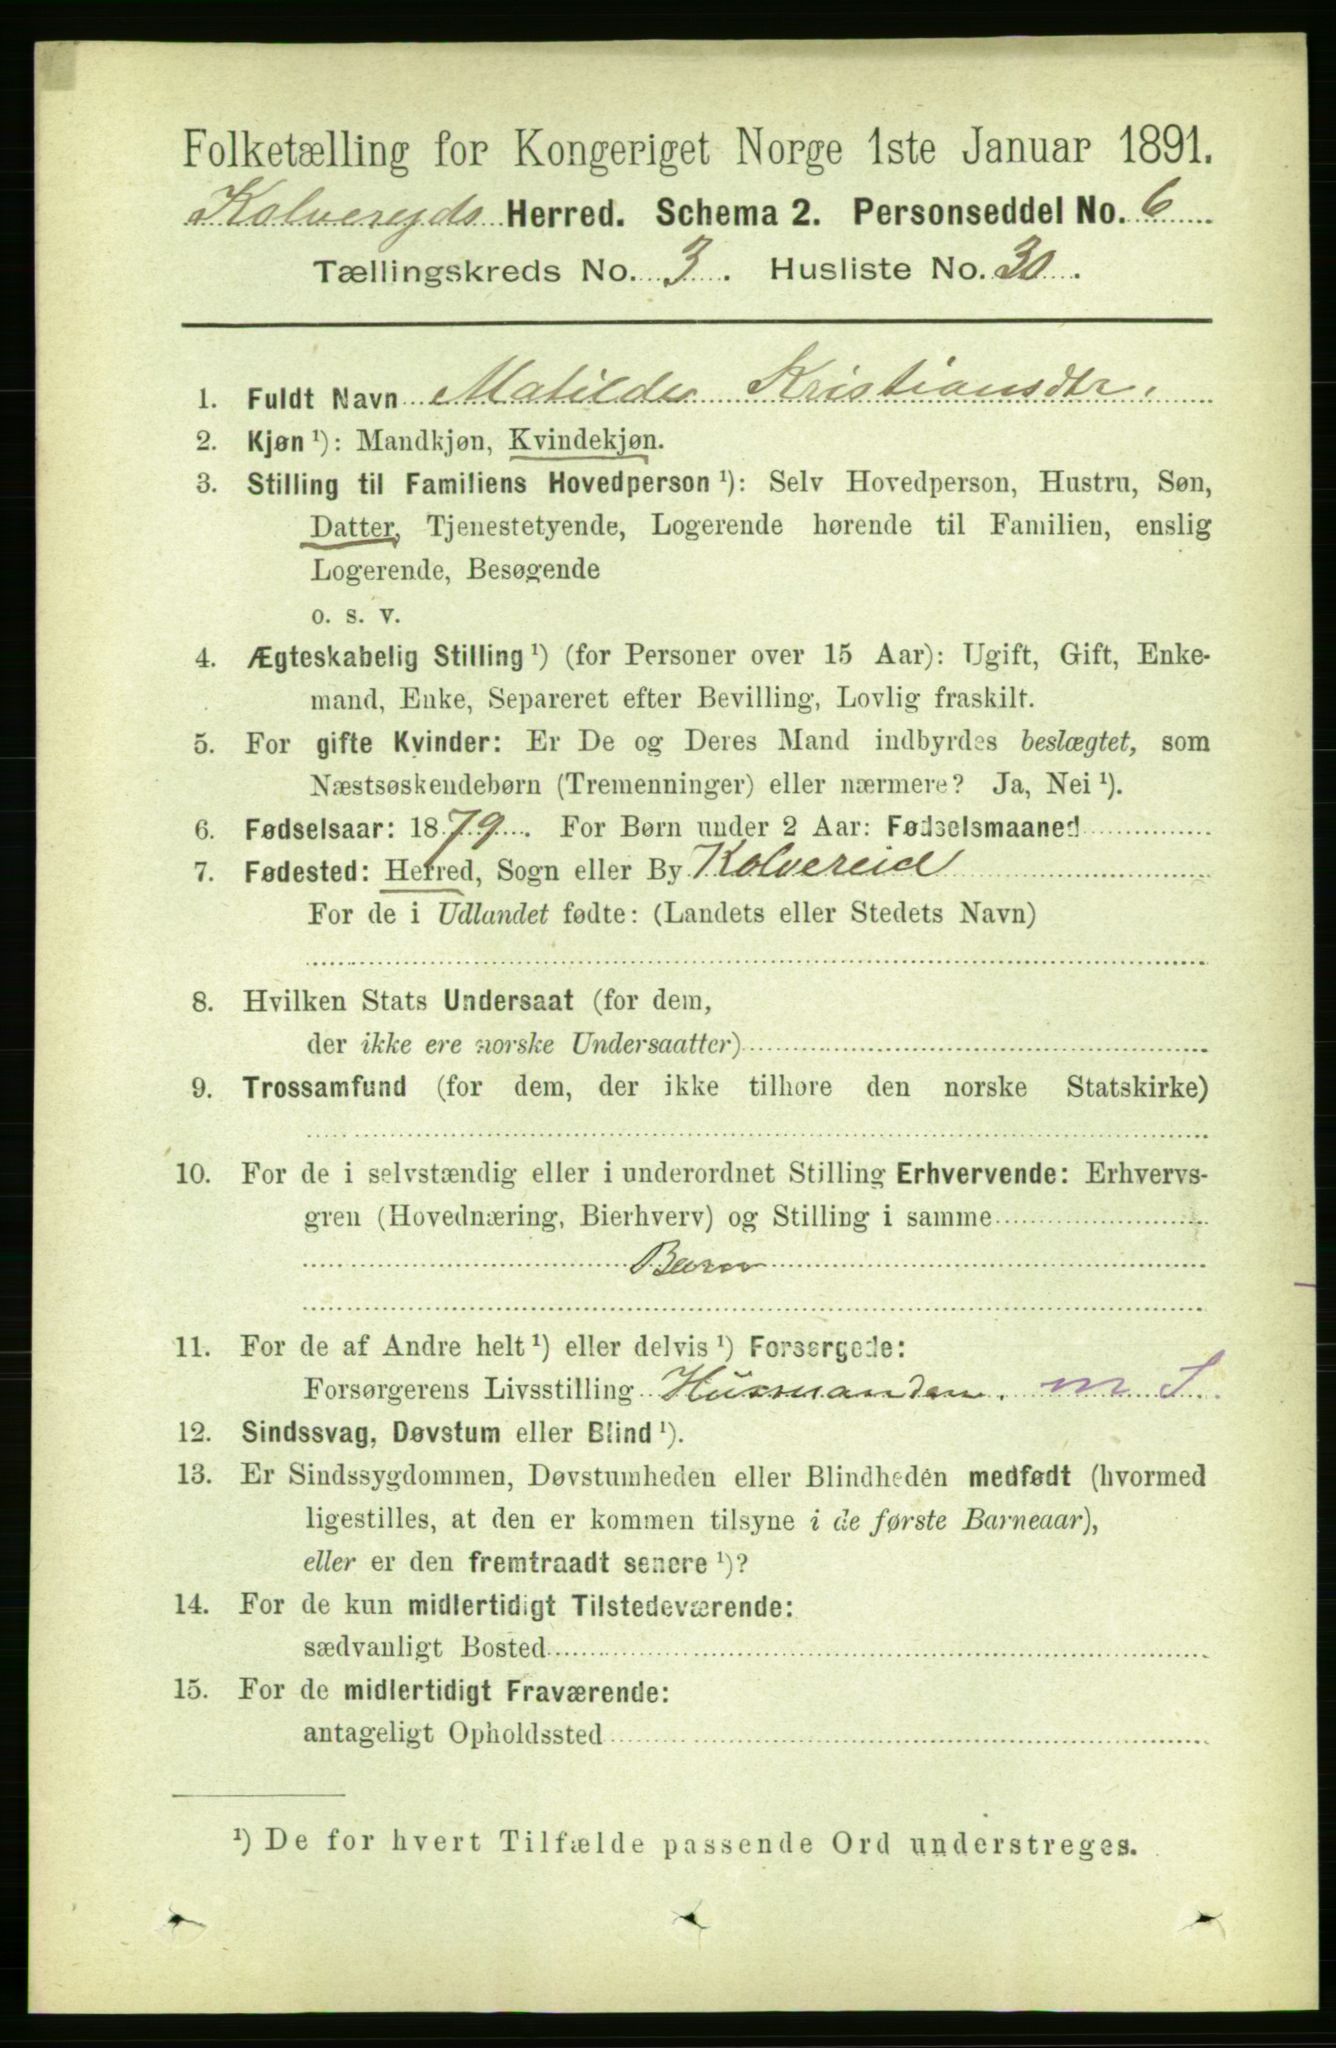 Folketælling for Kongeriget Norge 1ste Januar 1891.
Kolvereyds Herred. Schema 2. Personseddel No. 6
Tællingskreds No. 3. Husliste No. 30.
1. Fuldt Navn Matilde Kristiansdtr.
2. Kjøn ¹): Mandkjøn, Kvindekjøn.
3. Stilling til Familiens Hovedperson ¹): Selv Hovedperson, Hustru, Søn,
Datter, Tjenestetyende, Logerende hørende til Familien, enslig
Logerende, Besøgende
o. s. v.
4. Ægteskabelig Stilling ¹) (for Personer over 15 Aar): Ugift, Gift, Enke-
mand, Enke, Separeret efter Bevilling, Lovlig fraskilt.
5. For gifte Kvinder: Er De og Deres Mand indbyrdes beslægtet, som
Næstsøskendebørn (Tremenninger) eller nærmere? Ja, Nei ¹).
6. Fødselsaar: 1879. For Børn under 2 Aar: Fødselsmaaned
7. Fødested: Herred, Sogn eller By Kolvereid
For de i Udlandet fødte: (Landets eller Stedets Navn)
8. Hvilken Stats Undersaat (for dem,
der ikke ere norske Undersaatter)
9. Trossamfund (for dem, der ikke tilhøre den norske Statskirke)
10. For de i selvstændig eller i underordnet Stilling Erhvervende: Erhvervs-
gren (Hovednæring, Bierhverv) og Stilling i samme
Barn
11. For de af Andre helt ¹) eller delvis ¹) Forsørgede:
Forsørgerens Livsstilling Husmanden. m S.
12. Sindssvag, Døvstum eller Blind ¹).
13. Er Sindssygdommen, Døvstumheden eller Blindheden medfødt (hvormed
ligestilles, at den er kommen tilsyne i de første Barneaar),
eller er den fremtraadt senere ¹)?
14. For de kun midlertidigt Tilstedeværende:
sædvanligt Bosted
15. For de midlertidigt Fraværende:
antageligt Opholdssted
¹) De for hvert Tilfælde passende Ord understreges.